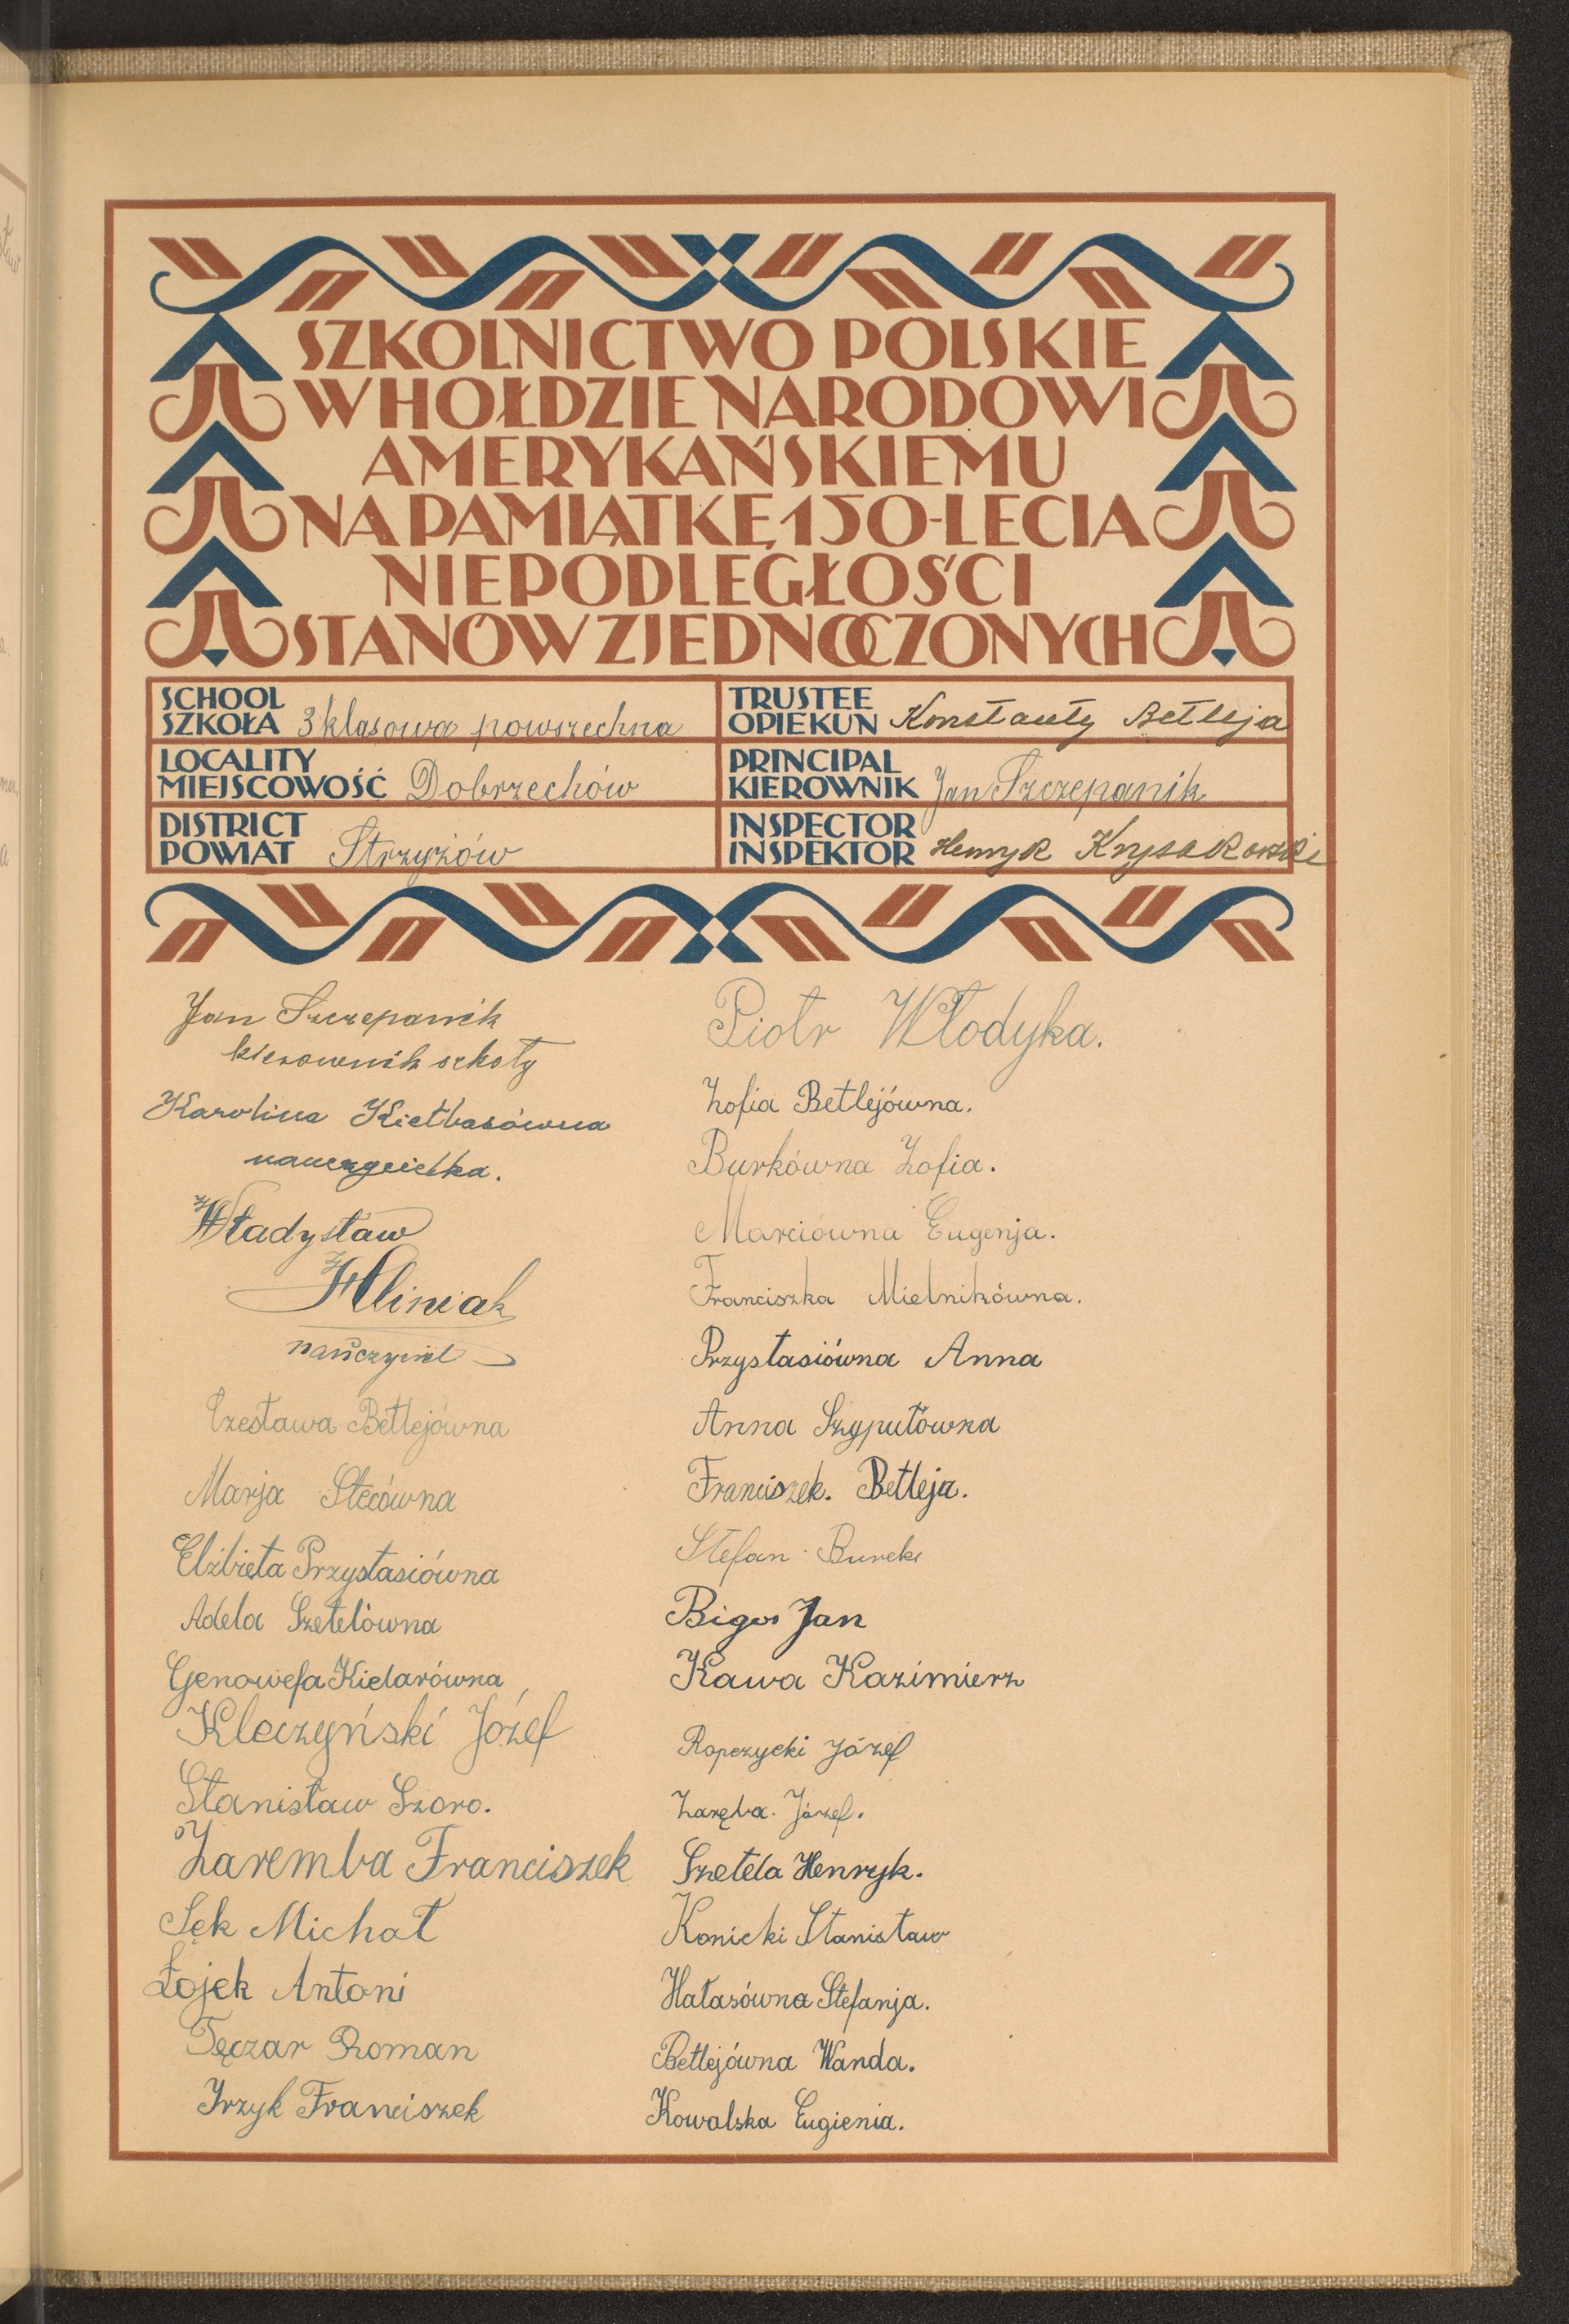 SZKOLNICTWO POLSKIE
W HOŁDZIE NARODOWI
AMERYKAŃSKIEMU
NA PAMIĄTKĘ 150-LECIA
NIEPODLEGŁOŚCI
STANÓW ZJEDNOCZONYCH
SCHOOL
SZKOŁA 3 klasowa powszechna
LOCALITY
MIEJSCOWOŚĆ Dobrzechów
DISTRICT
POWIAT Strzyżów
TRUSTEE
OPIEKUN Konstanty Betleja
PRINCIPAL
KIEROWNIK Jan Szczepanik
INSPECTOR
INSPEKTOR Henryk Krysakowski
Jan Szczepanik
kierownik szkoły
Karolina Kiełbasówna
nauczycielka.
Władysław
Kliniak
nauczyciel
Czesława Betlejówna
Marja Stecówna
Elżbieta Przystasiówna
Adela Szetelówna
Genowefa Kielarówna
Kleczyński Józef
Stanisław Szoro.
Zaremba Franciszek
Sęk Michał
Łojek Antoni
Tęczar Roman
Irzyk Franciszek
Piotr Włodyka.
Zofia Betlejówna.
Burkówna Zofia.
Marciówna Eugenja.
Franciszka Mielnikówna.
Przystasiówna Anna
Anna Szypułówna
Franciszek. Betleja.
Stefan Burek
Bigos Jan
Kawa Kazimierz
Ropczycki Józef
Zaręba. Józef.
Szetela Henryk.
Konicki Stanisław
Hałasówna Stefanja.
Betlejówna Wanda.
Kowalska Eugienia.